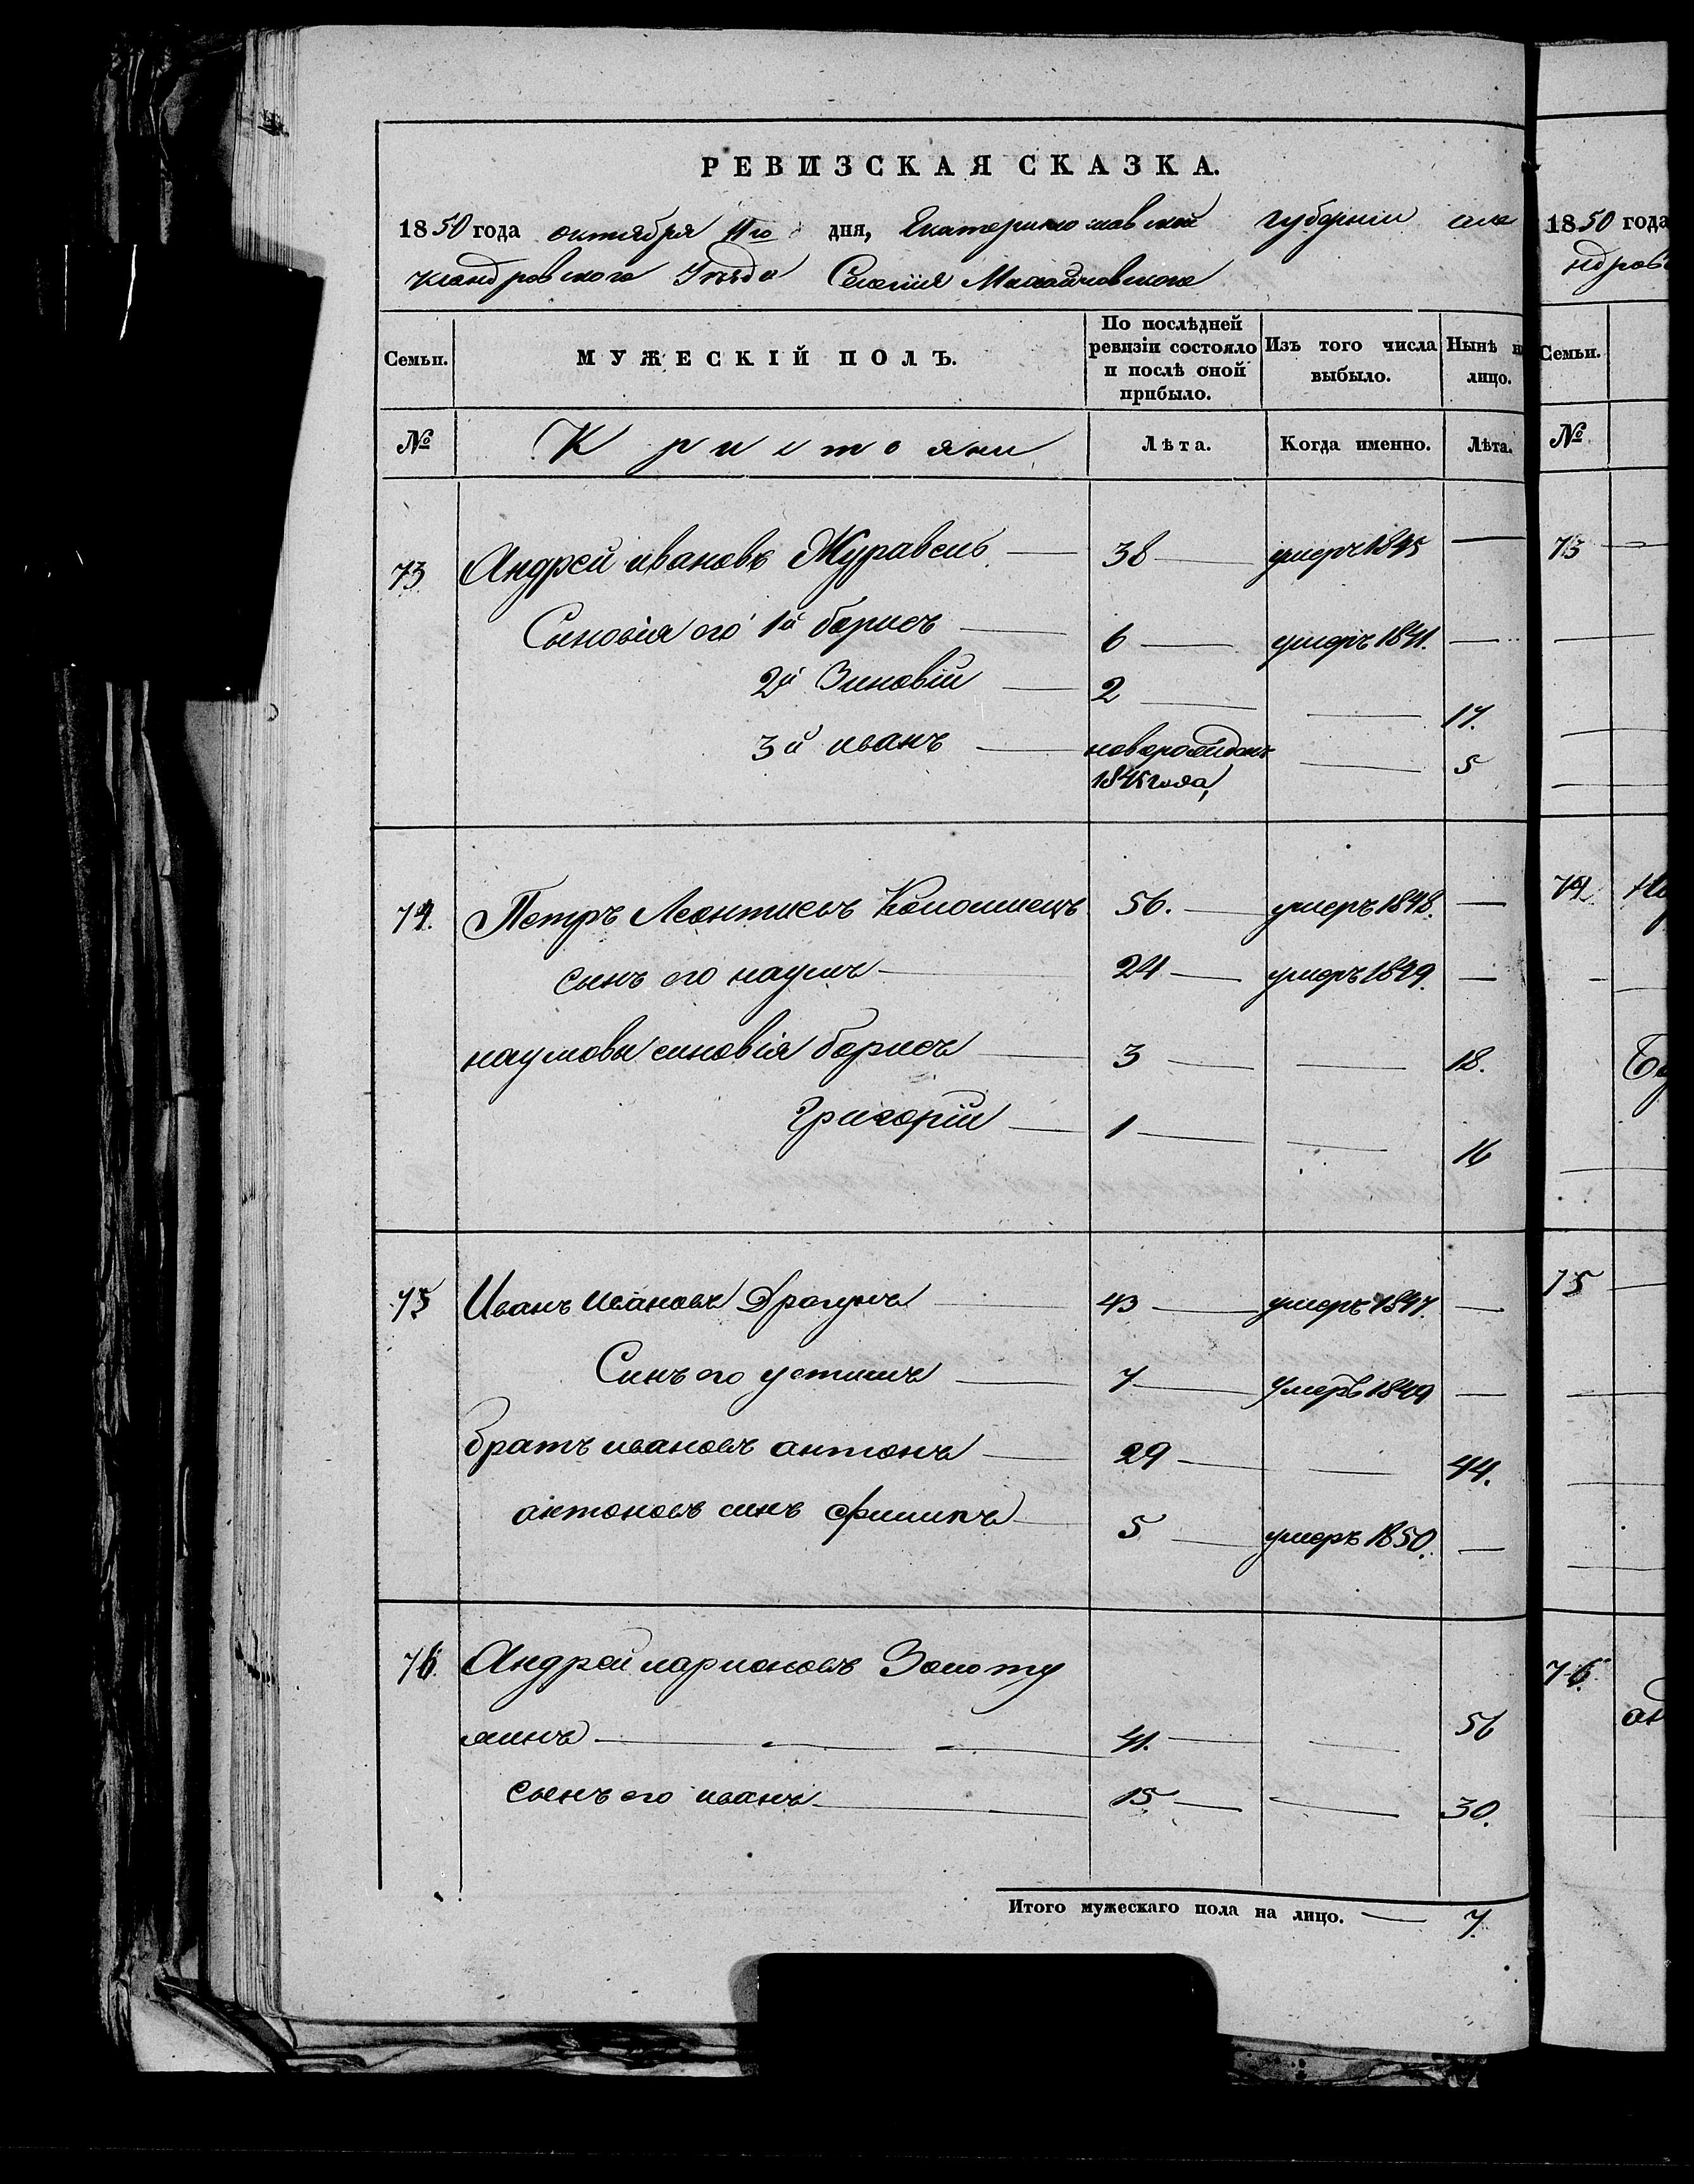 РЕВИЗСКАЯ СКАЗКА.
1850 года октября 11го дня, Екатеринославской губернiи але
ксандровского Уезда Селения Михайловского
Семьи. МУЖЕСКІЙ ПОЛЪ. По послѣдней ревизіи состояло и послѣ оной прибыло. Изъ того числа выбыло. Нынѣ на лицо.
№ Кристояни Лѣта. Когда именно. Лѣта.
73 Андрей ивановъ Журавель 38 умеръ 1845
Сыновія его 1й борисъ 6 умеръ 1841.
2й Зиновій 2 17.
3й иванъ новорожденъ 1845 года 5
74. Петръ Леонтиевъ Коломиецъ 56. умеръ 1848.
сынъ его наумъ 24 умеръ 1849.
наумовы синовія борисъ 3 18.
Григорій 1 16
75 Иванъ Ивановъ Драгунъ 43 умеръ 1847.
Синъ его устимъ 7 Умеръ 1849
братъ ивановъ антонъ 29 44.
антоновъ синъ филипъ 5 умеръ 1850.
76. Андрей ларионовъ Золоту
хинъ 41. 56
сынъ его иванъ 15 30.
Итого мужескаго пола на лицо. 7.
1850 года
ндров
Семьи.
№
73
74
75
76.